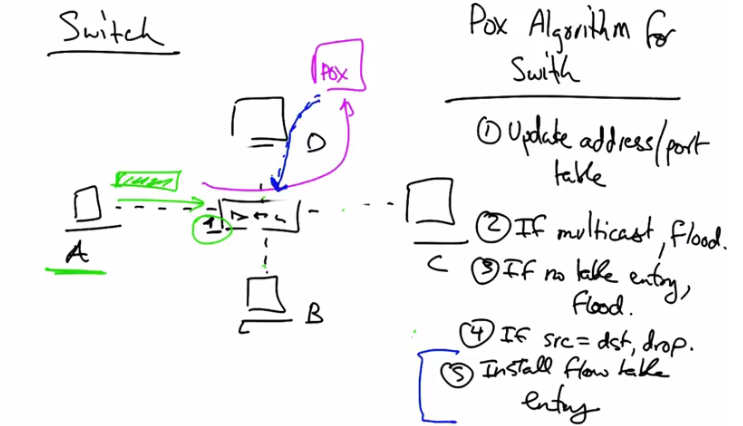 Switch
Pox Algorithm for
Swith
POX
D
① Update address/port
table
1
A
② If multicast, flood.
C
③ If no table entry,
flood.
B
④ If src = dst, drop.
⑤ Install flow table
entry